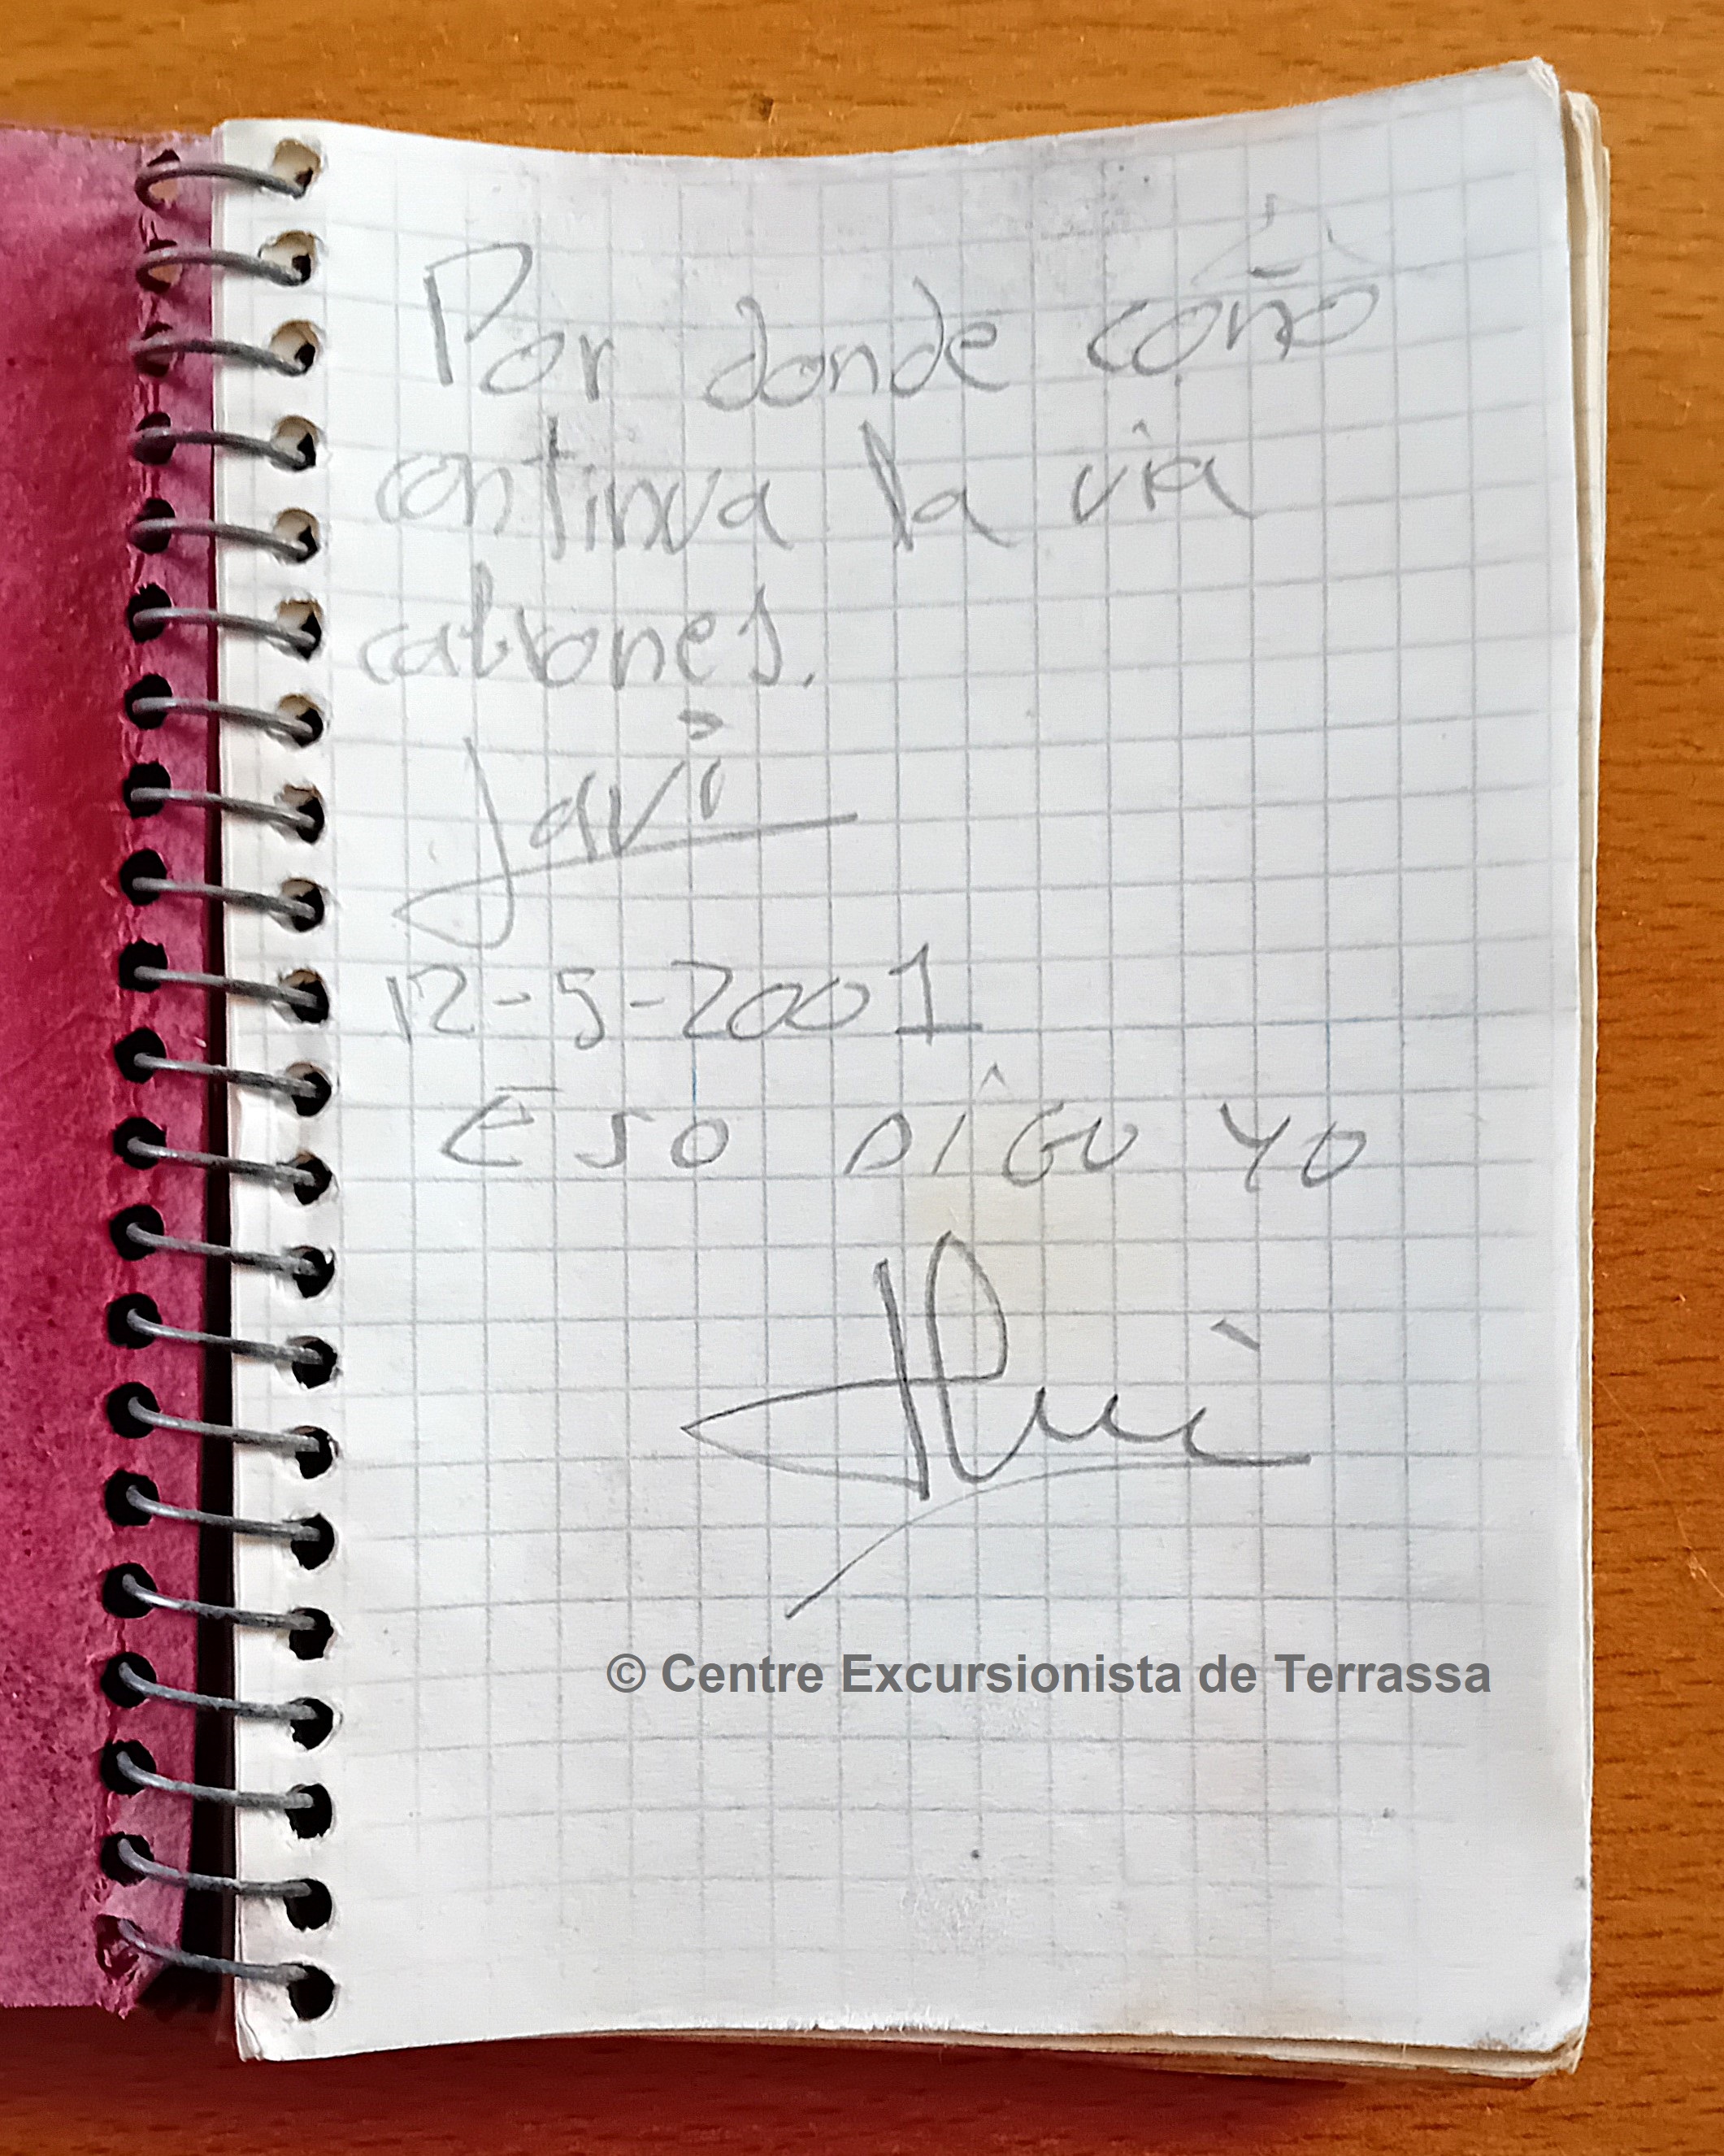 Por donde coño
continua la via
cabrones.
Javi
12-5-2001
ESO DIGO YO
© Centre Excursionista de Terrassa